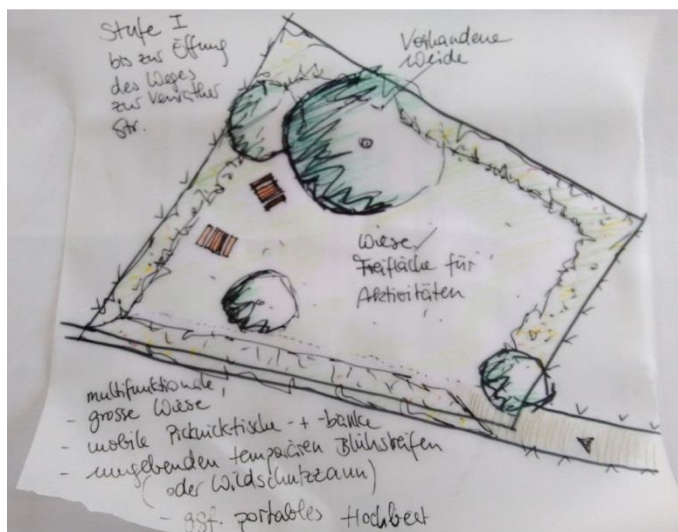 Stufe I
bis zur Öffnung
des Weges
zur Venrather
Str.
Vorhandene
Weide
Wiese/
Freifläche für
Aktivitäten
multifunktionale,
- grosse Wiese
- mobile Picknicktische + -bänke
- umgebenden temporären Blühstreifen
(oder Wildschutzzaun)
- ggf. portables Hochbeet